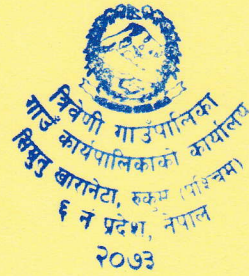 त्रिवेणी गाउँपालिका
गाउँ कार्यपालिकाको कार्यालय
सिम्रुतु खारानेटा, रुकुम (पश्चिम)
६ नं प्रदेश, नेपाल
२०७३